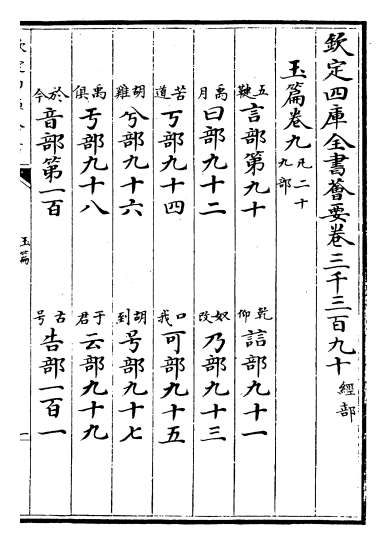 欽定四庫全書薈要卷三千三百九十 經部
玉篇卷九 凡二十九部
五鞬言部第九十 乾仰誩部九十一
禹月曰部九十二 奴改乃部九十三
苦道丂部九十四 口我可部九十五
胡雞兮部九十六 胡到号部九十七
禹俱亏部九十八 于君云部九十九
於今音部第一百 古号告部一百一
玉篇